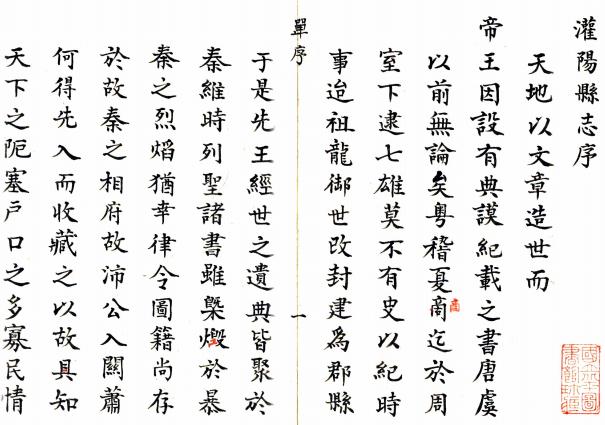 灌陽縣志序
天地以文章造世而
帝王因設有典謨紀載之書唐虞
以前無論矣粤稽夏商迄於周
室下逮七雄莫不有史以紀時
事迨祖龍御世改封建爲郡縣
單序
一
于是先王經世之遺典皆聚於
秦維時列聖諸書雖槩燬於暴
秦之烈熖猶幸律令圖籍尚存
於故秦之相府故沛公入關蕭
何得先入而收藏之以故具知
天下之阨塞户口之多寡民情